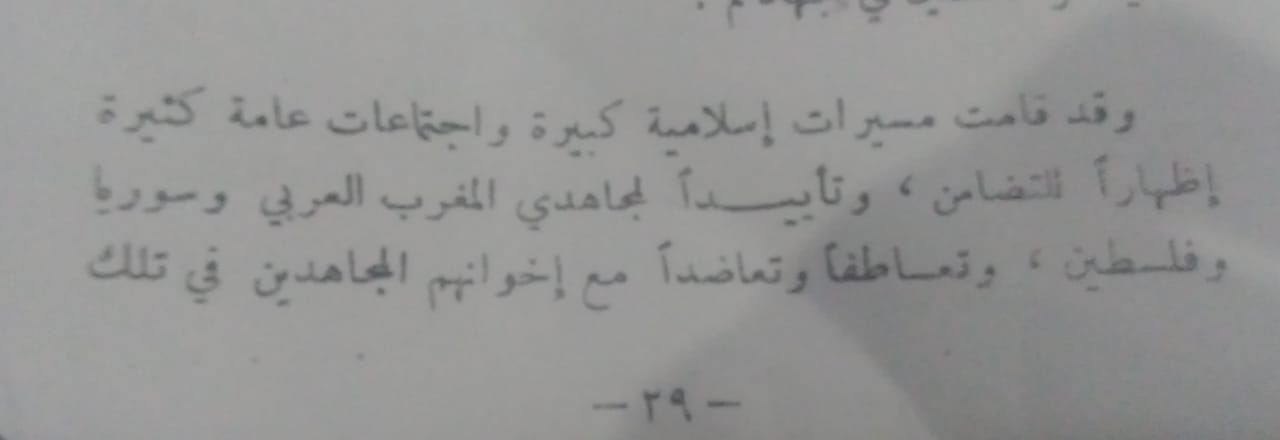 في جهادهم .
وقد قامت مسيرات إسلامية كبيرة واجتماعات عامة كثيرة
إظهاراً للتضامن ، وتأييــداً لمجاهدي المغرب العربي وسوريا
وفلسطين ، وتعــاطفاً وتعاضداً مع إخوانهم المجاهدين في تلك
— ٢٩ —